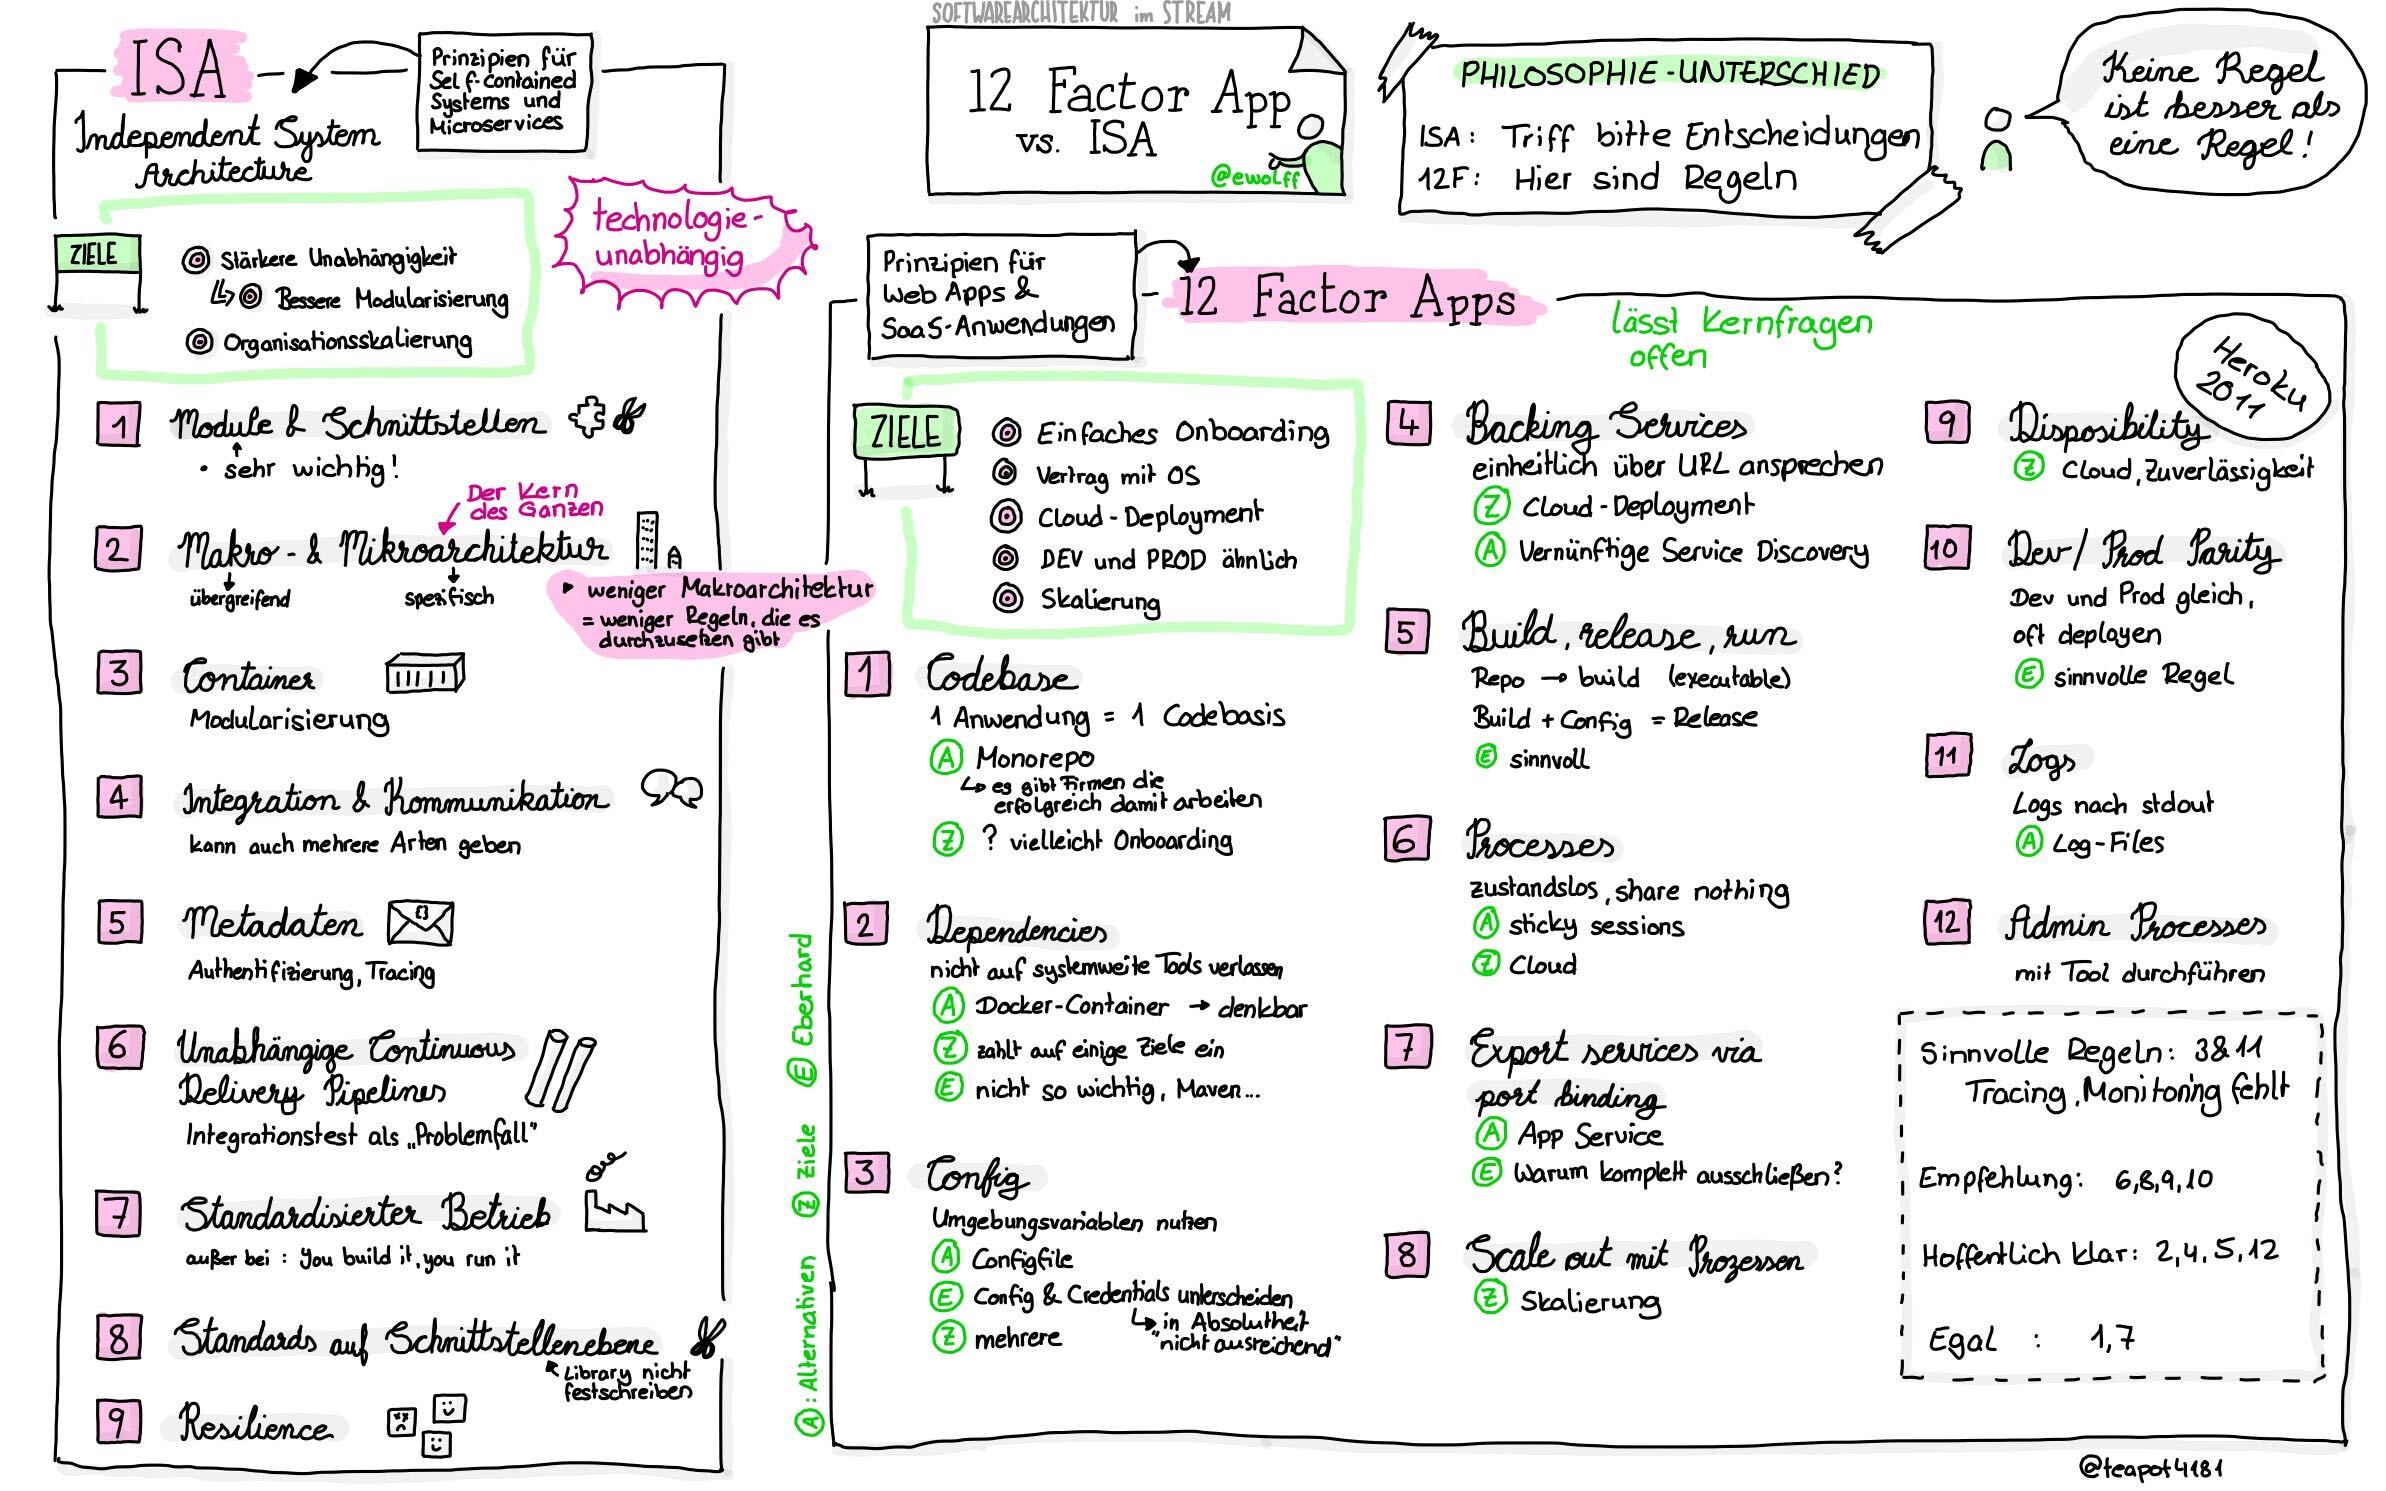 SOFTWAREARCHITEKTUR im STREAM
12 Factor App
vs. ISA
@ewolff
PHILOSOPHIE-UNTERSCHIED
ISA: Triff bitte Entscheidungen
12F: Hier sind Regeln
Keine Regel
ist besser als
eine Regel!
ISA
Prinzipien für
Self-Contained
Systems und
Microservices
Independent System
Architecture
technologie-
unabhängig
ZIELE
Stärkere Unabhängigkeit
Bessere Modularisierung
Organisationsskalierung
1 Module & Schnittstellen
• sehr wichtig!
Der Kern
des Ganzen
2 Makro- & Mikroarchitektur
übergreifend
spezifisch
▸ weniger Makroarchitektur
= weniger Regeln, die es
durchzusetzen gibt
3 Container
Modularisierung
4 Integration & Kommunikation
kann auch mehrere Arten geben
5 Metadaten
Authentifizierung, Tracing
6 Unabhängige Continuous
Delivery Pipelines
Integrationstest als „Problemfall"
7 Standardisierter Betrieb
außer bei: you build it, you run it
8 Standards auf Schnittstellenebene
Library nicht
festschreiben
9 Resilience
Prinzipien für
Web Apps &
SaaS-Anwendungen
12 Factor Apps
lässt Kernfragen
offen
Heroku
2011
ZIELE
Einfaches Onboarding
Vertrag mit OS
Cloud-Deployment
DEV und PROD ähnlich
Skalierung
A: Alternativen Z Ziele E Eberhard
1 Codebase
1 Anwendung = 1 Codebasis
A Monorepo
↳ es gibt Firmen die
erfolgreich damit arbeiten
Z ? vielleicht Onboarding
2 Dependencies
nicht auf systemweite Tools verlassen
A Docker-Container → denkbar
Z zahlt auf einige Ziele ein
E nicht so wichtig, Maven...
3 Config
Umgebungsvariablen nutzen
A Configfile
E Config & Credentials unterscheiden
↳ in Absolutheit
"nicht ausreichend"
Z mehrere
4 Backing Services
einheitlich über URL ansprechen
Z Cloud-Deployment
A Vernünftige Service Discovery
5 Build, release, run
Repo → build (executable)
Build + Config = Release
E sinnvoll
6 Processes
zustandslos, share nothing
A sticky sessions
Z Cloud
7 Export services via
port binding
A App Service
E Warum komplett ausschließen?
8 Scale out mit Prozessen
Z Skalierung
9 Disposibility
Z Cloud, Zuverlässigkeit
10 Dev/Prod Parity
Dev und Prod gleich,
oft deployen
E sinnvolle Regel
11 Logs
Logs nach stdout
A Log-Files
12 Admin Processes
mit Tool durchführen
Sinnvolle Regeln: 3&11
Tracing, Monitoring fehlt
Empfehlung: 6,8,9,10
Hoffentlich klar: 2,4,5,12
Egal : 1,7
@teapot4181